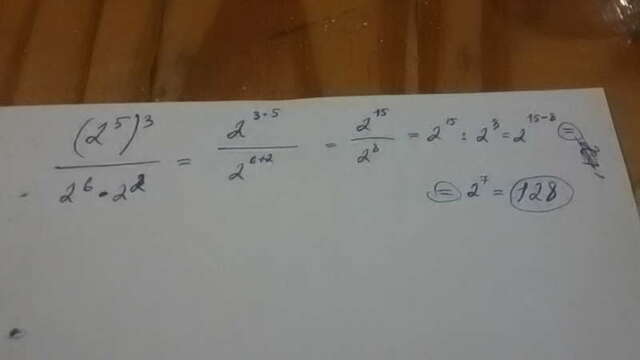 (2^5)^3 / 2^6 · 2^2 = 2^{3·5} / 2^{6+2} = 2^15 / 2^8 = 2^15 : 2^8 = 2^{15-8} =
= 2^7 = 128